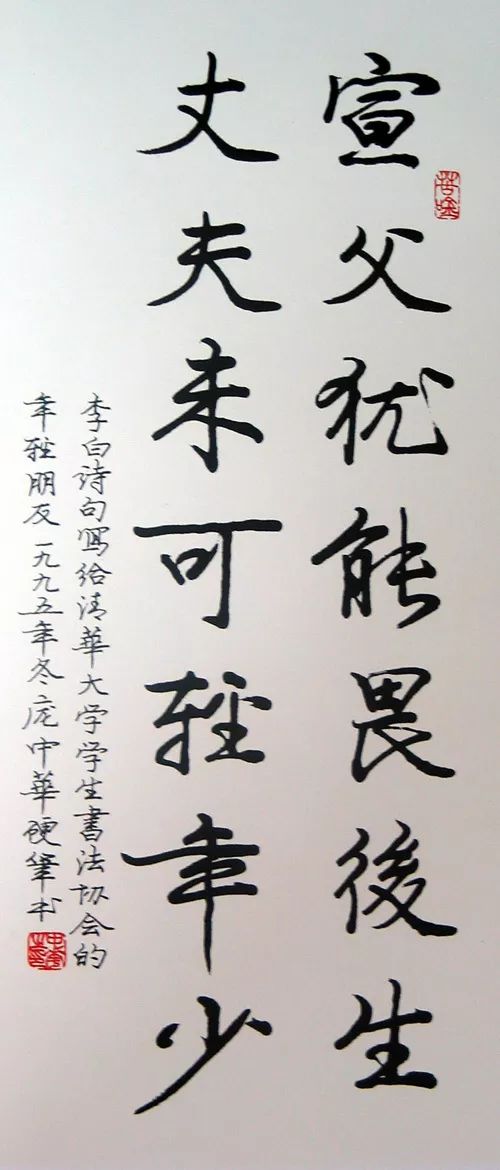 宣父犹能畏後生
丈夫未可輕年少
李白诗句寫给清華大学学生書法协会的
年轻朋友一九九五年冬庞中華硬筆书